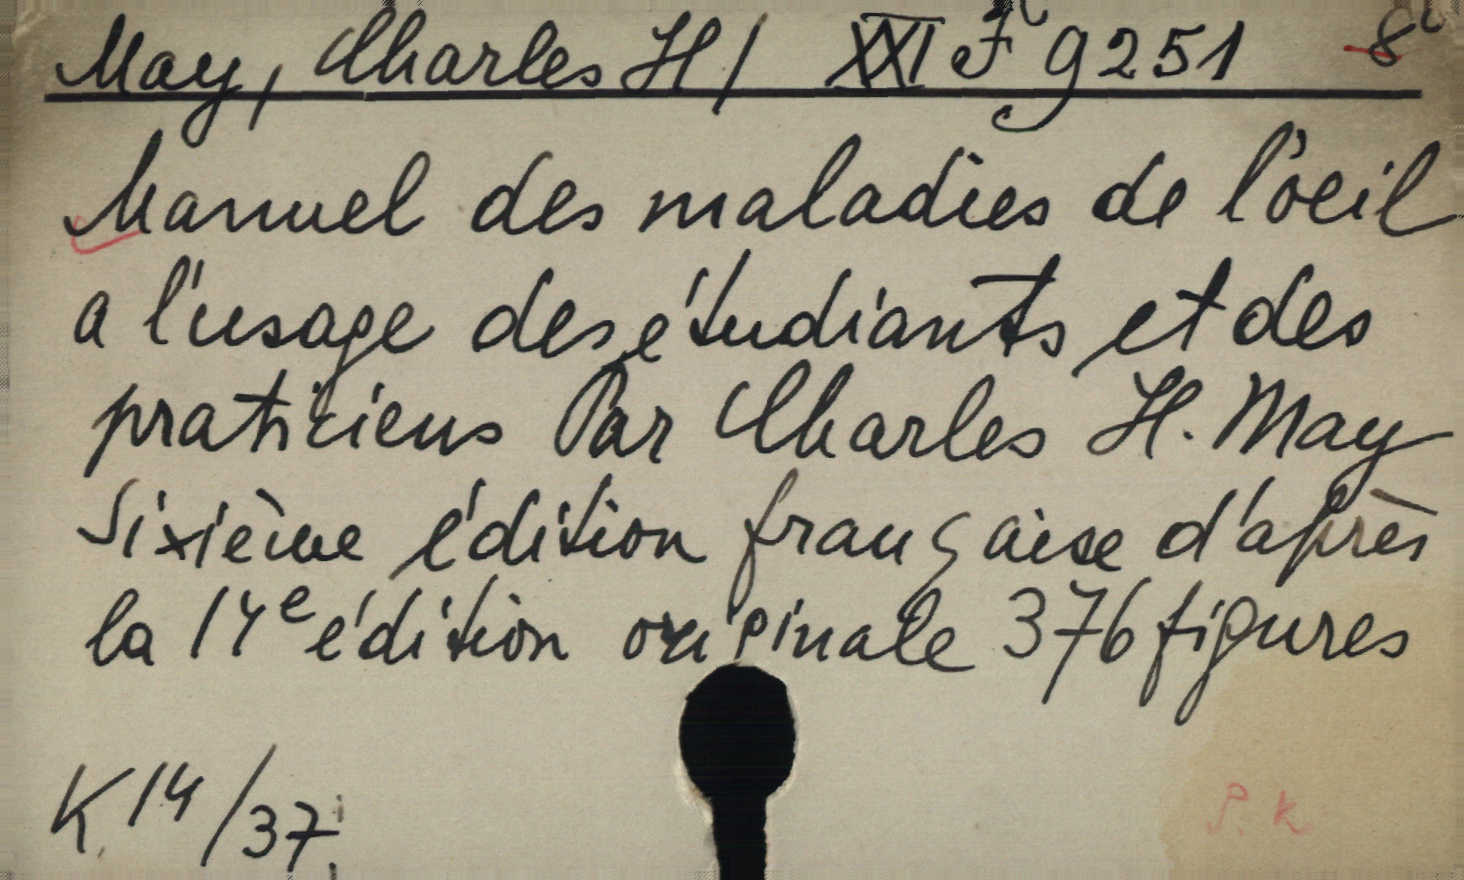 May, Charles H / XXI F 9251 8
Manuel des maladies de l'oeil
a l'usage des étudiants et des
praticiens Par Charles H. May
Sixième édition française d'après
la 14e édition originale 376 figures
K 14/37.
P. K